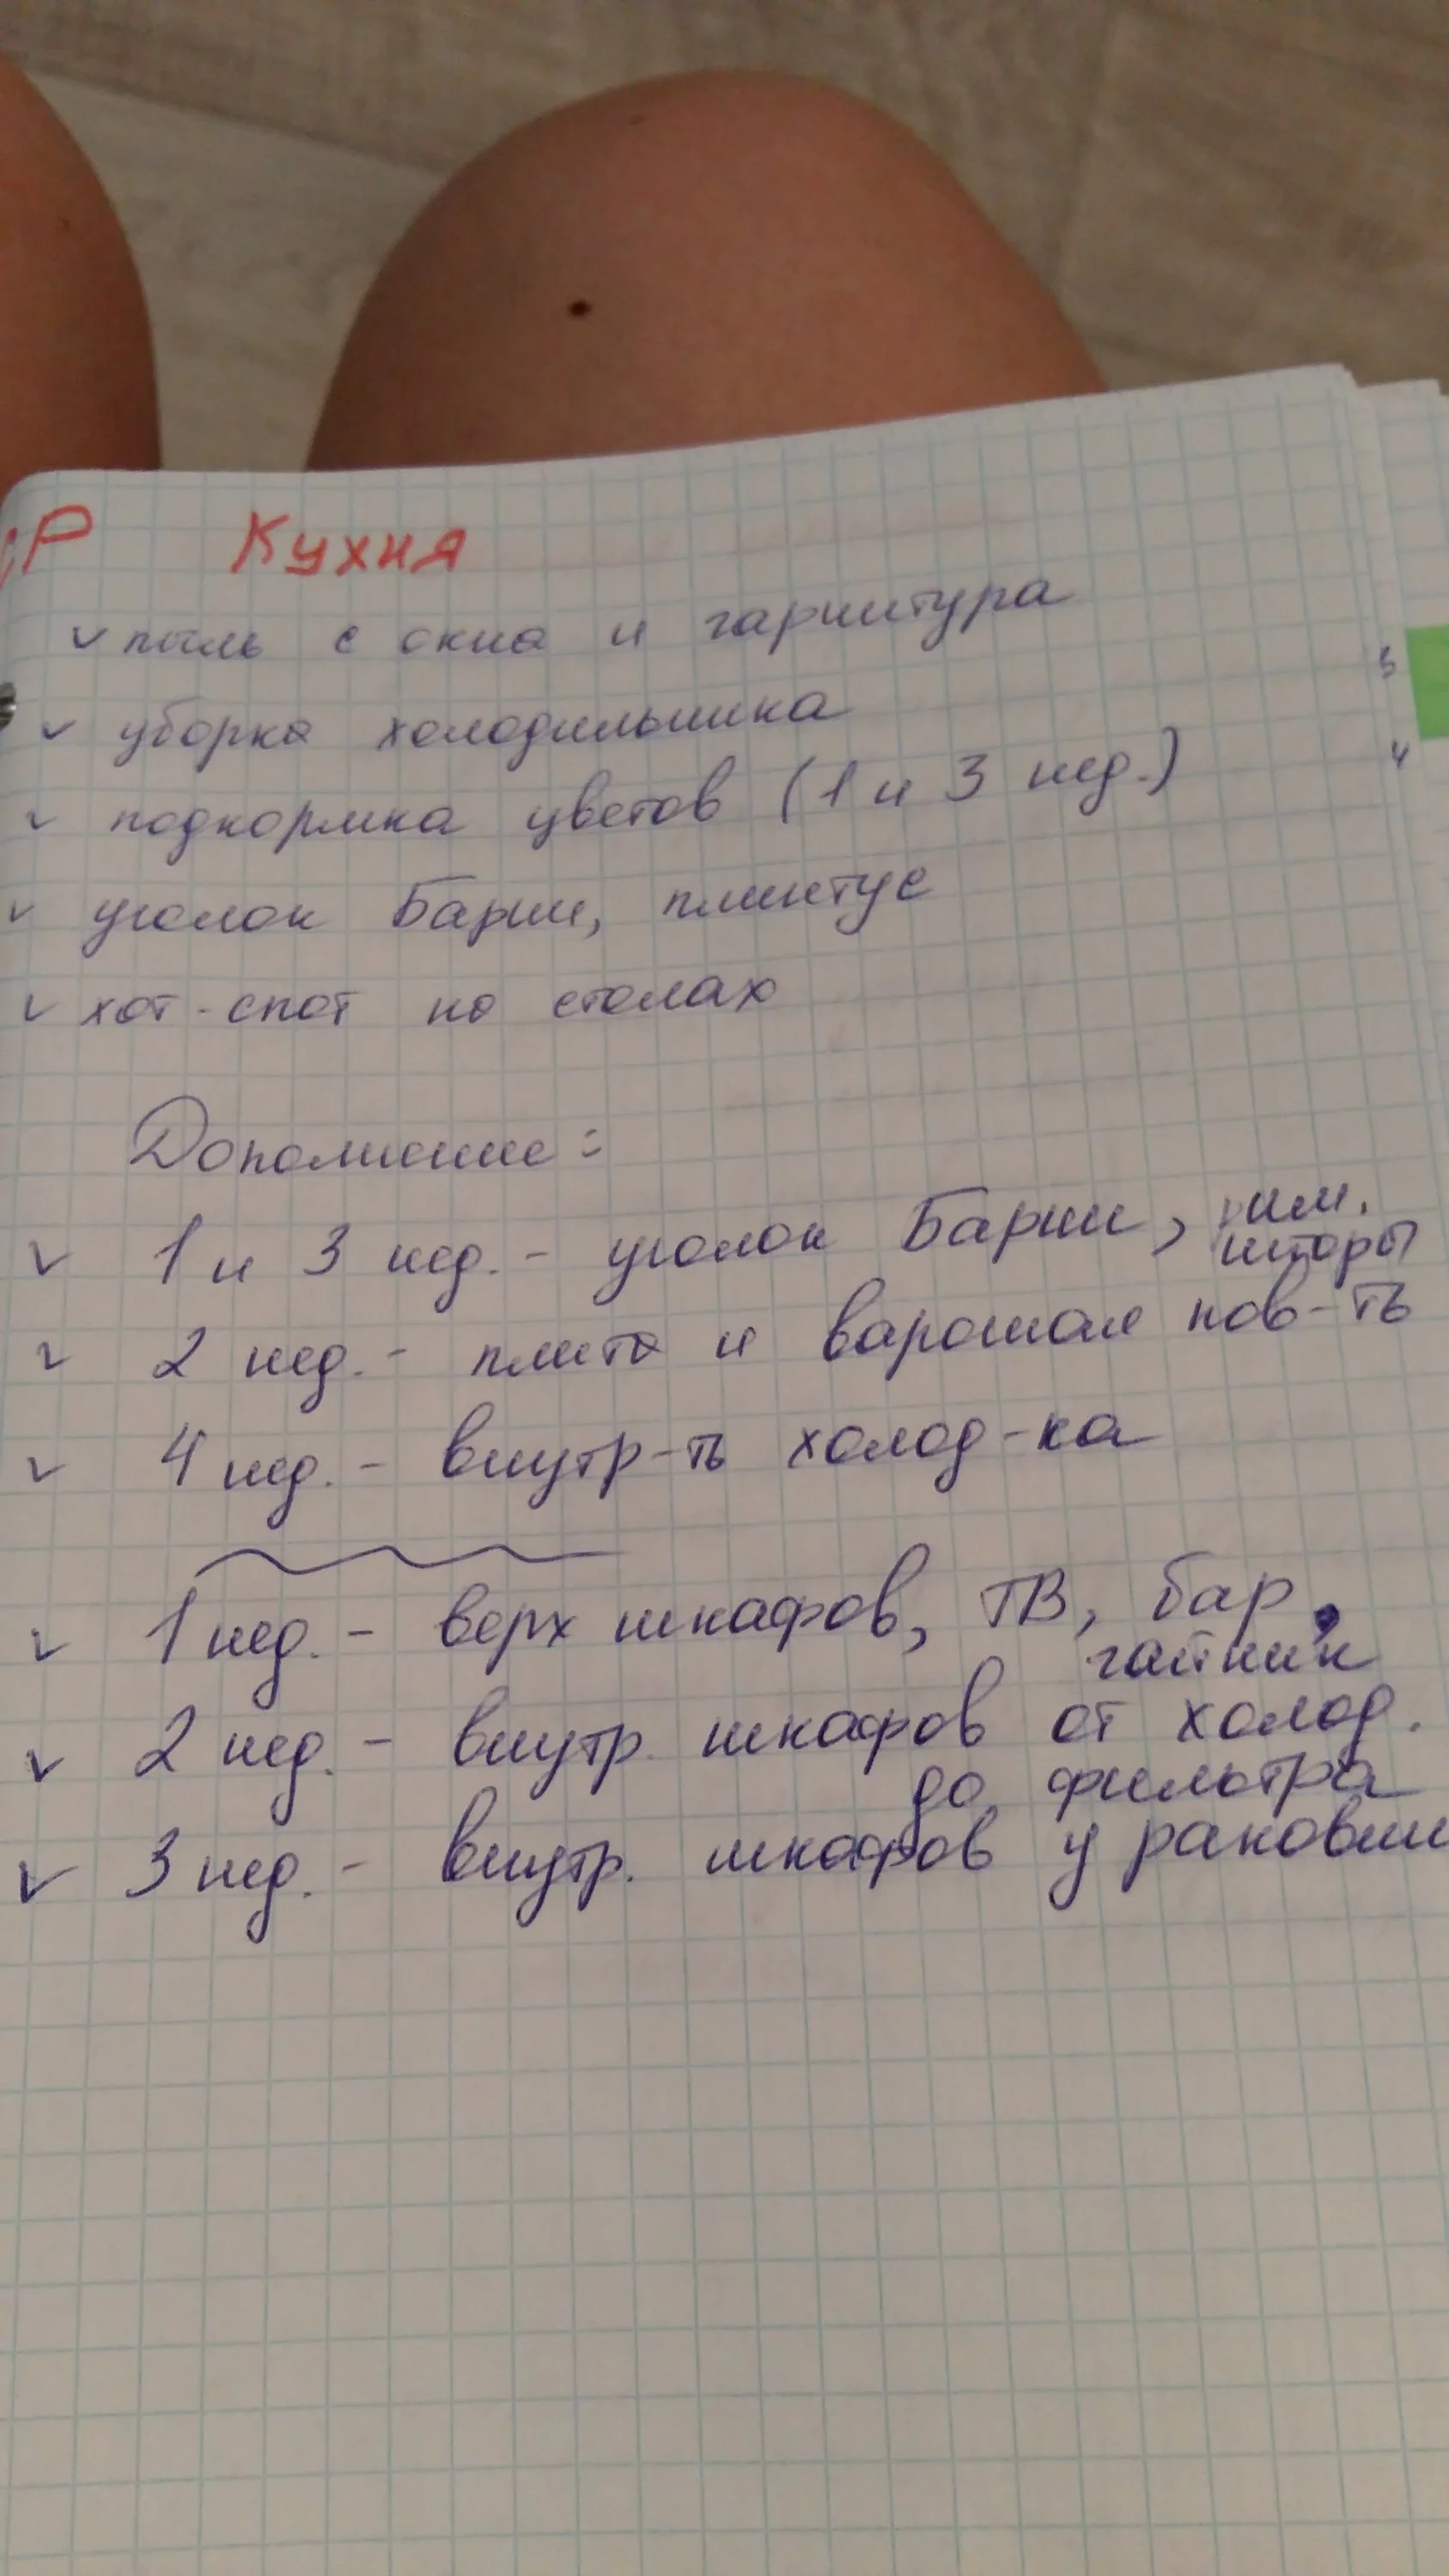 СР Кухня
пыль с окна и гарнитура
уборка холодильника
подкормка цветов (1 и 3 нед.)
уголок Барни, плинтус
хот-спот на столах
Дополнение:
1 и 3 нед. - уголок Барни, рим. шторы
2 нед. - плита и варочная пов-ть
4 нед. - внутр-ть холод-ка
1 нед. - верх шкафов, ТВ, бар,
чайник
2 нед. - внутр. шкафов от холод.
до фильтра
3 нед. - внутр. шкафов у раковин
5
4